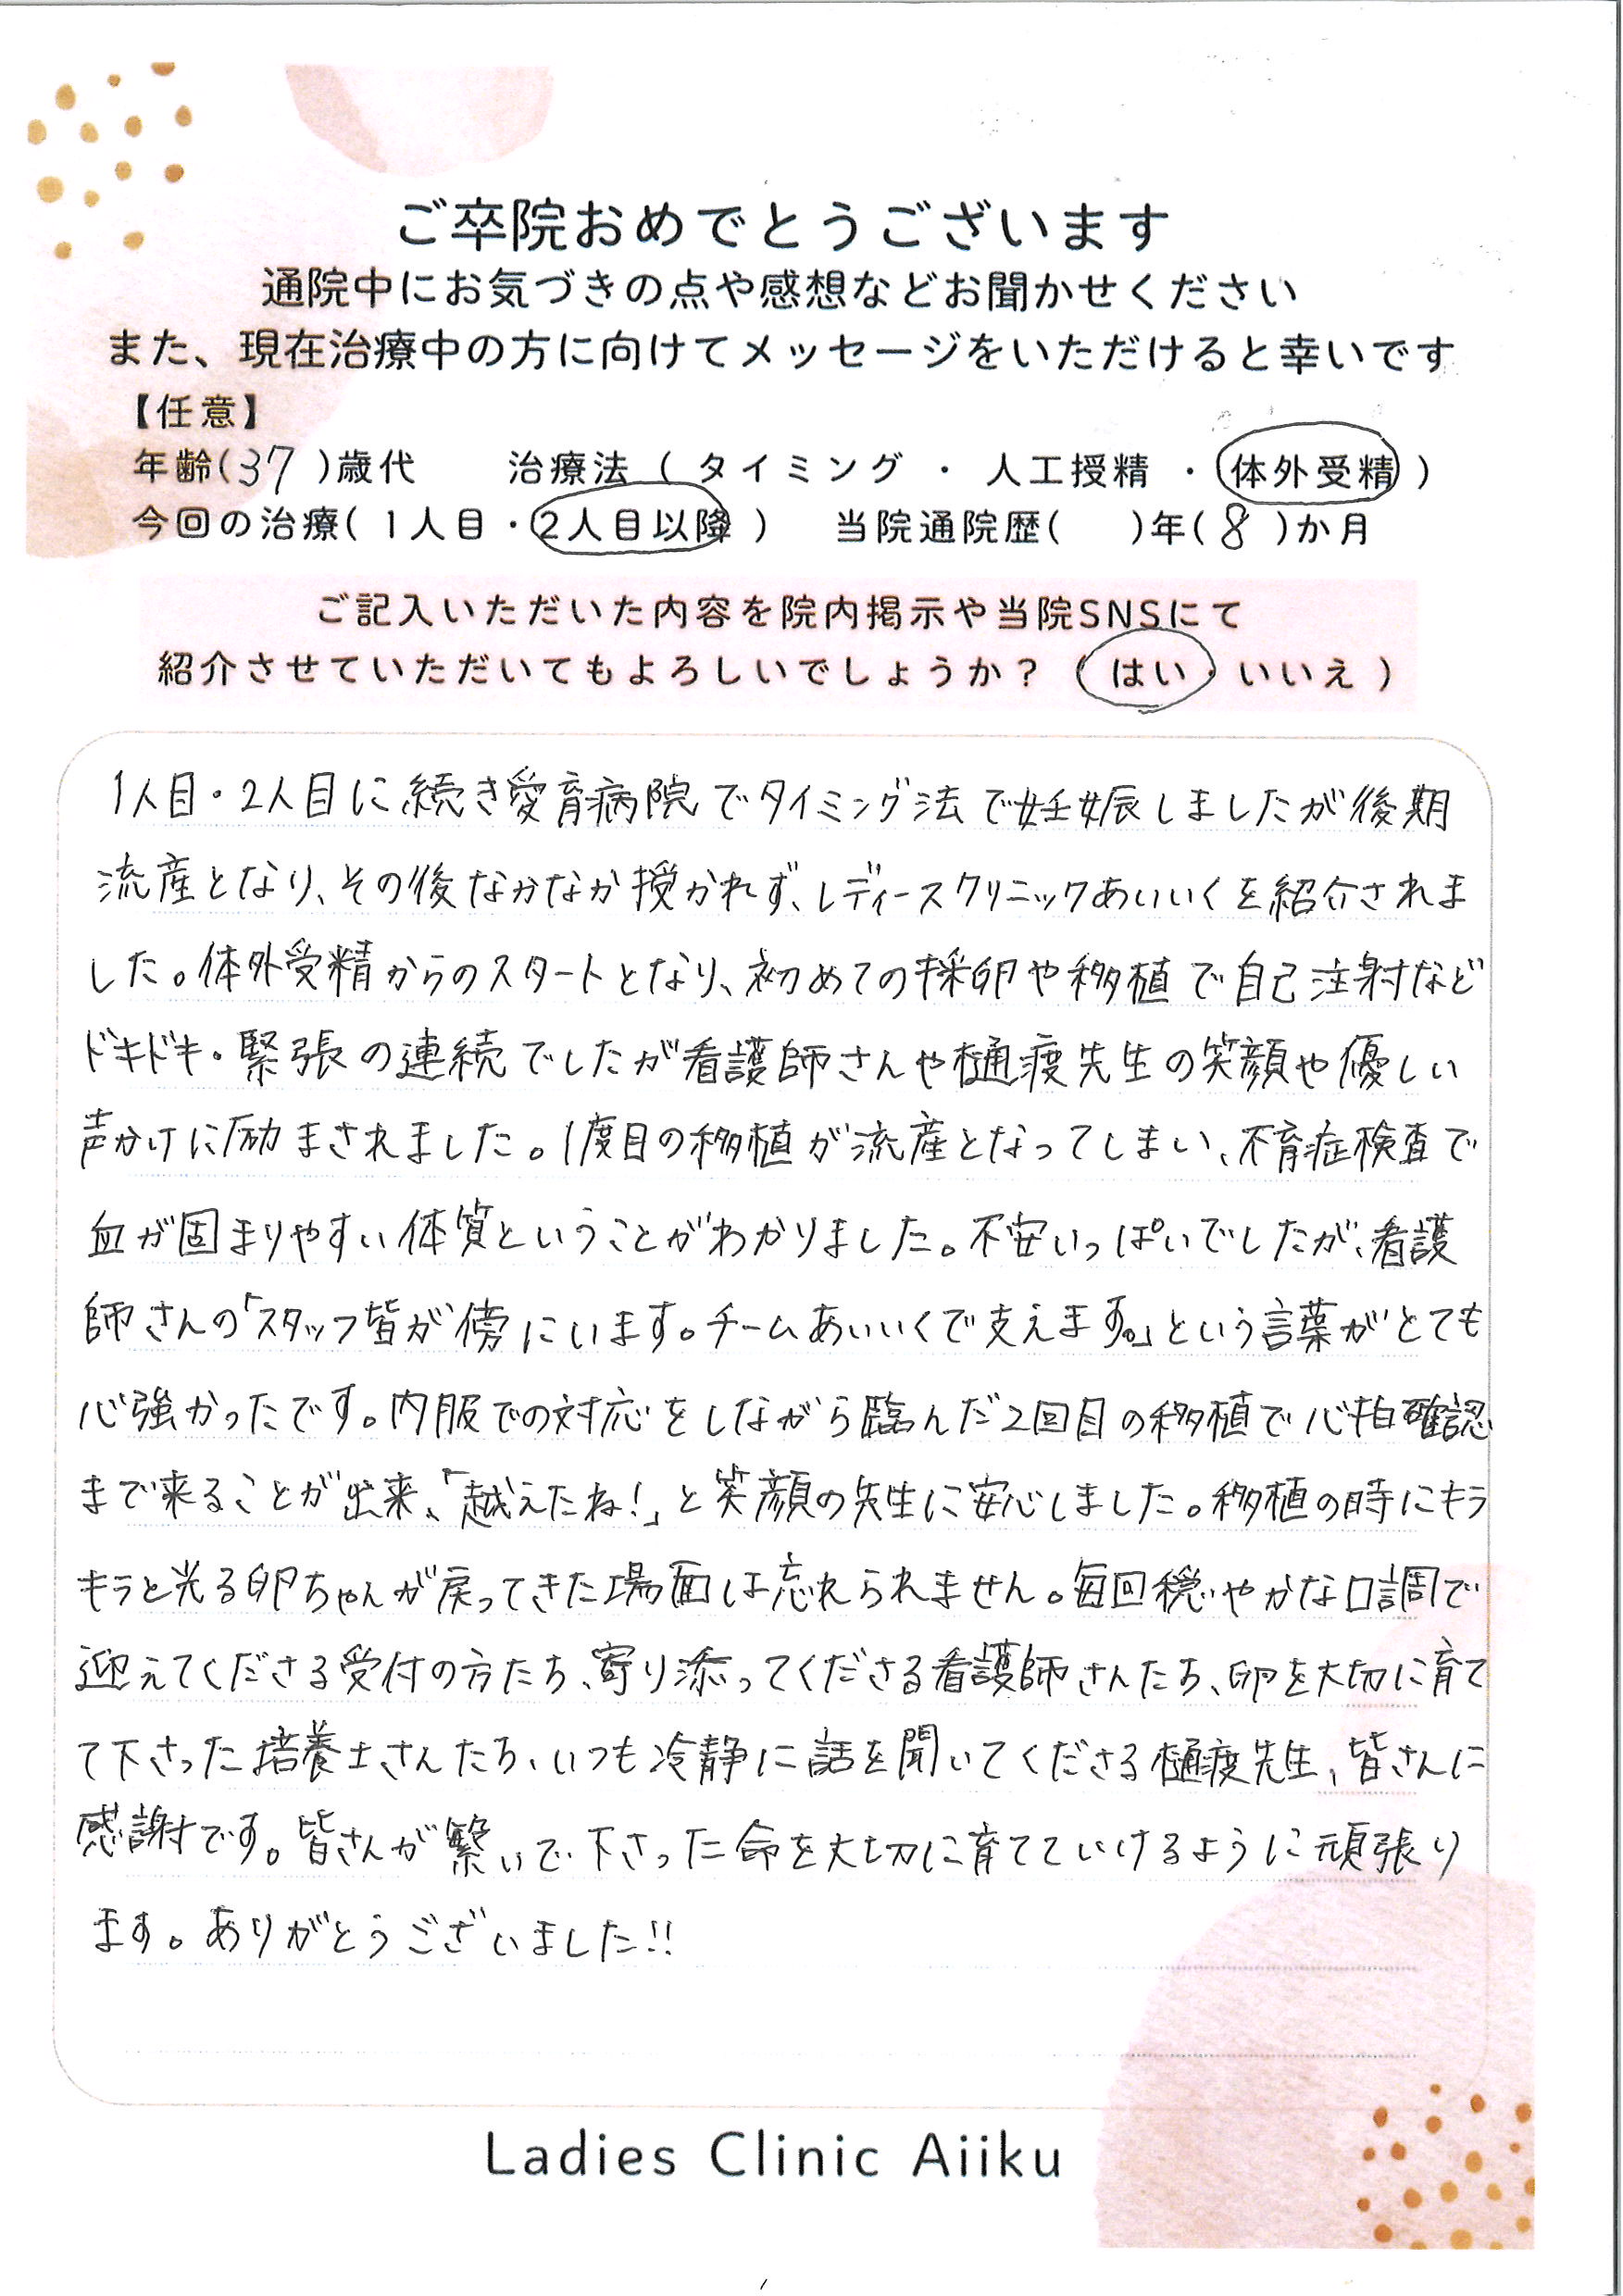 ご卒院おめでとうございます
通院中にお気づきの点や感想などお聞かせください
また、現在治療中の方に向けてメッセージをいただけると幸いです
【任意】
年齢(37)歳代 治療法 ( タイミング ・ 人工授精 ・ 体外受精 )
今回の治療( 1人目・2人目以降 ) 当院通院歴( )年(8)か月
ご記入いただいた内容を院内掲示や当院SNSにて
紹介させていただいてもよろしいでしょうか? (はい・いいえ)
1人目・2人目に続き愛育病院でタイミング法で妊娠しましたが後期
流産となり、その後なかなか授かれず、レディースクリニックあいいくを紹介されま
した。体外受精からのスタートとなり、初めての採卵や移植で自己注射など
ドキドキ・緊張の連続でしたが看護師さんや樋渡先生の笑顔や優しい
声かけに励まされました。1度目の移植が流産となってしまい、不育症検査で
血が固まりやすい体質ということがわかりました。不安いっぱいでしたが、看護
師さんの「スタッフ皆が傍にいます。チームあいいくで支えます。」という言葉がとても
心強かったです。内服での対応をしながら臨んだ2回目の移植で心拍確認
まで来ることが出来、「越えたね!」と笑顔の先生に安心しました。移植の時にキラ
キラと光る卵ちゃんが戻ってきた場面は忘れられません。毎回穏やかな口調で
迎えてくださる受付の方たち、寄り添ってくださる看護師さんたち、卵を大切に育て
て下さった培養士さんたち、いつも冷静に話を聞いてくださる樋渡先生、皆さんに
感謝です。皆さんが繋いで下さった命を大切に育てていけるように頑張り
ます。ありがとうございました!!
Ladies Clinic Aiiku